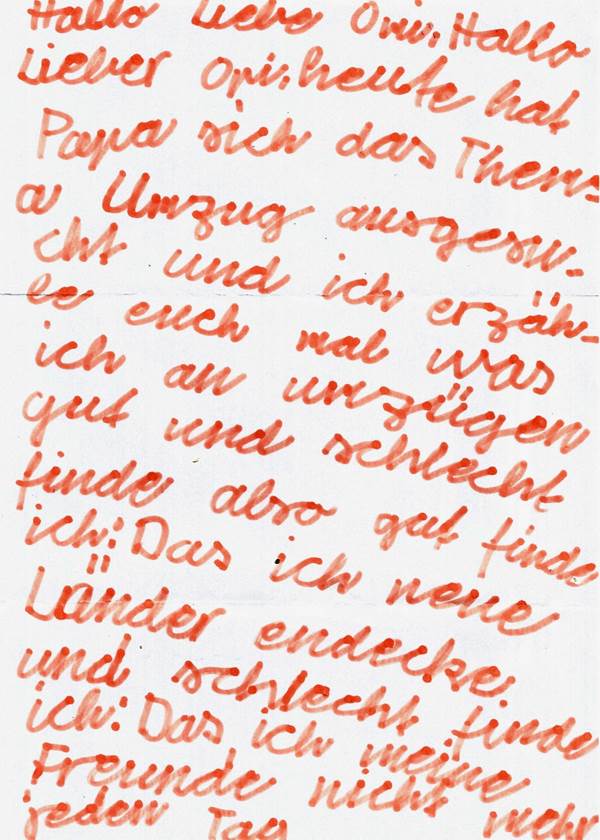 Hallo Liebe Omi, Hallo
Lieber Opi, heute hat
Papa sich das Them-
a Umzug ausgesu-
cht und ich erzäh-
le euch mal was
ich an umzügen
gut und schlecht
finde also gut finde
ich: Das ich neue
Länder endecke
und schlecht finde
ich: Das ich meine
Freunde nicht mehr
jeden Tag